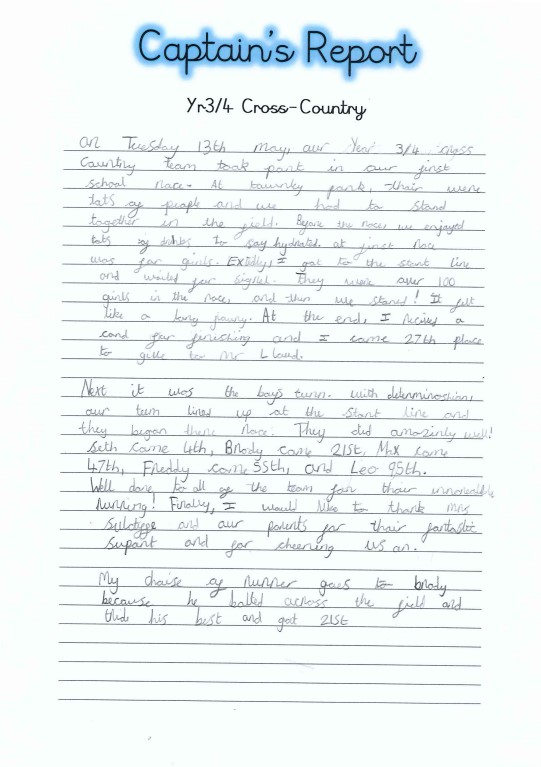 Captain's Report
Yr3/4 Cross-Country
On Tuesday 13th may, our Year 3/4 cross
Country team took part in our first
school race. At tawnky park, thair were
lats of people and we had to stand
together in the field. Before the race we enjoyed
lots of drinks to say hydrated. at first Race
was for girls. Exitedly, I got to the start line
and waited for signel. They were over 100
girls in the race, and then we started! It felt
like a long jouny. At the end, I recived a
card for finishing and I came 27th place
to give to Mr Lloud.
Next it was the boy's turn. with determinashion,
our teem lined up at the start line and
they began there race. They did amazinly well!
Seth came 4th, Brody came 21st, Max came
47th, Freddy came 55th, and Leo 95th.
Well done to all of the team for thair
running! Finally, I would like to thank mrs
and our parents for thair fantastic
supart and for cheering us on.
My choise of runner goes to brody
because he bolted across the field and
his best and got 21st